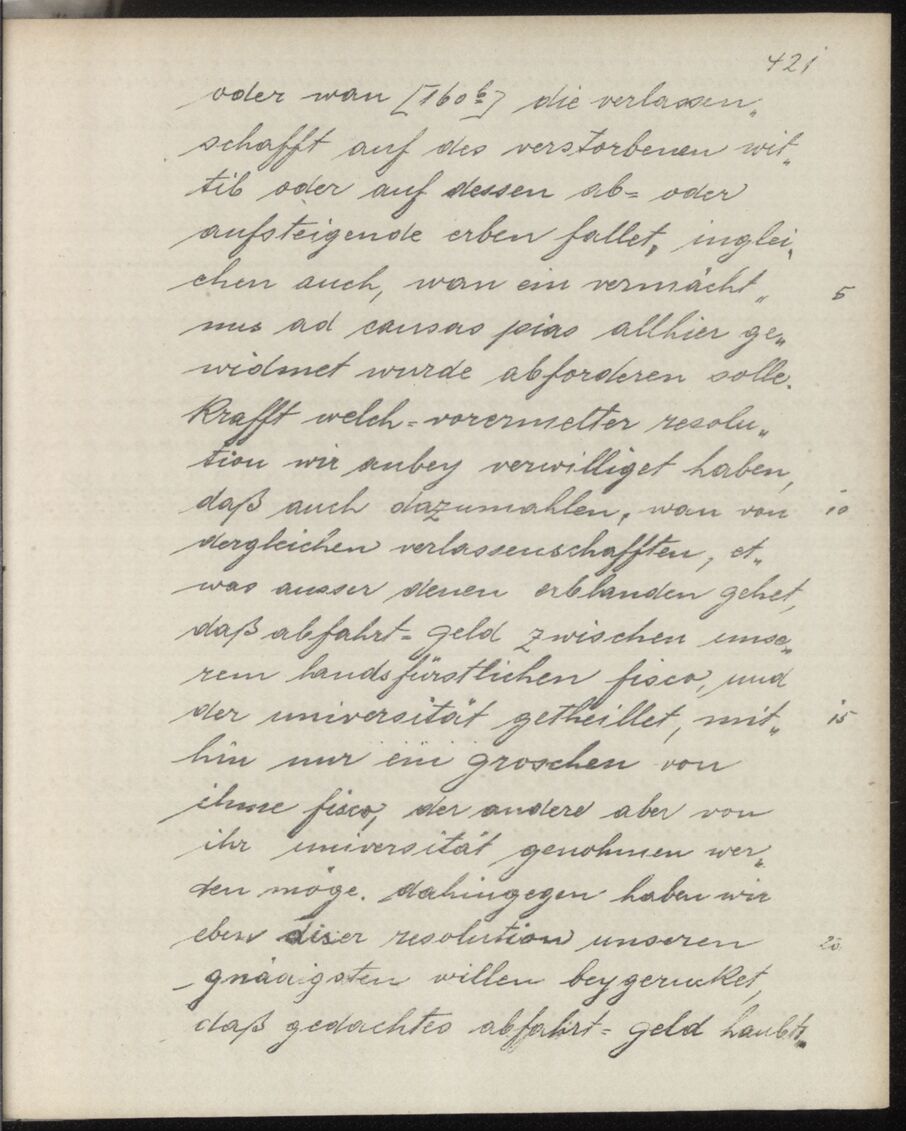 421
oder wan [160b] die verlassen„
schafft auf des verstorbenen wit„
tib oder auf dessen ab= oder
aufsteigende erben fallet, inglei„
chen auch, wan ein vermächt„ 5
nus ad causas pias allhier ge„
widmet wurde abforderen solle.
Krafft welch=vorermelter resolu„
tion wir anbey verwilliget haben,
daß auch dazumahlen, wan von 10
dergleichen verlassenschafften, et„
was ausser denen erblanden gehet,
daß abfahrt=geld zwischen unse„
rem landsfürstlichen fisco, und
der universität getheillet, mit„ 15
hin nur ein groschen von
ihme fisco, der andere aber von
ihr universität genohmen wer„
den möge. dahingegen haben wir
eben diser resolution unseren 20
gnädigsten willen beygerucket,
daß gedachtes abfahrt=geld haubt„